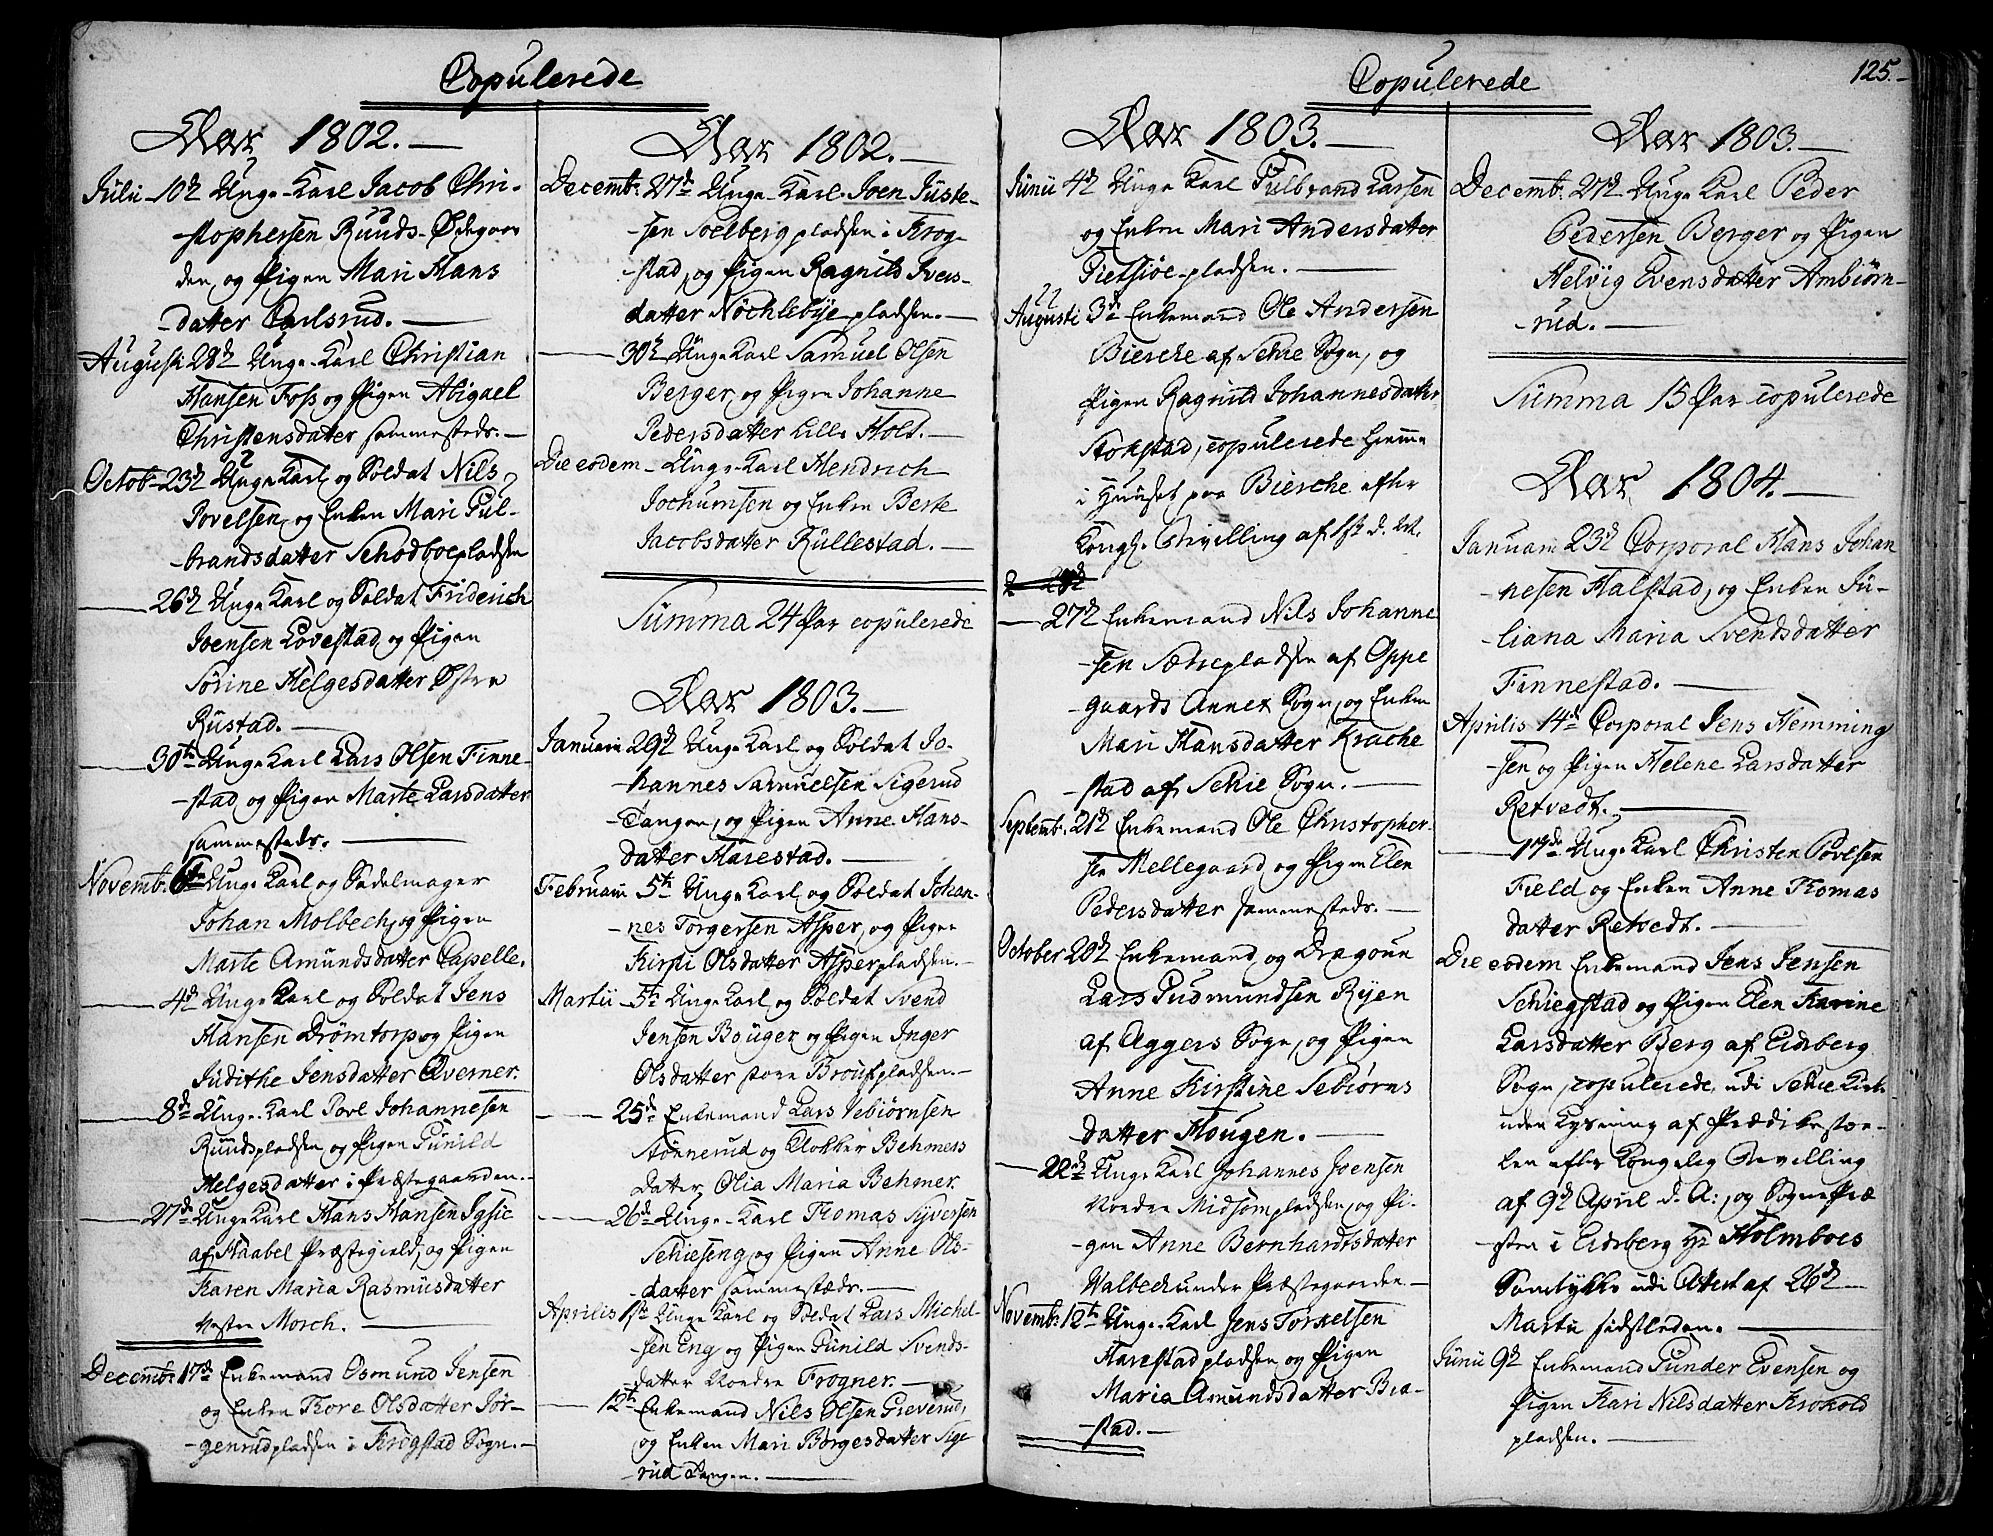 Copulerede
Aar 1802.
Julii 10d Unge Karl Jacob Chri-
-stophersen Ruuds-Ødegaar
den, og Pigen Mari Hans
-datter Carlsrud.
Augusti 28d Unge Karl Christian
Hansen Foss og Pigen Abigael
Christensdatter sammesteds.
Octob. 23d Unge Karl og Soldat Nils
Povelsen, og Enken Mari Gul-
-brandsdatter Schodboepladsen
26d Unge Karl og Soldat Friderich
Joensen Lovestad og Pigen
Sørine Helgesdatter Østre
Rustad.
30te Unge Karl Lars Olsen Finne-
-stad, og Pigen Marte Larsdatter
sammesteds.
Novemb. 6te Unge Karl og Sadelmager
Johan Molbech, og Pigen
Marte Amundsdatter Capelle.
4d Unge Karl og Soldat Jens
Hansen Drømtorp og Pigen
Judithe Jensdatter Qverner.
8d Unge Karl Povl Johannesen
Ruudspladsen og Pigen Gunild
Helgesdatter i Præstegaarden.
27d Unge Karl Hans Hansen Igsie
af Haabel Præstegield, og Pigen
Karen Maria Rasmusdatter
Vestre Morch.
Decemb. 17d Enkemand Osmund Jensen
og Enken Thore Olsdatter Jør-
-genrudpladsen i Krogstad Sogn.
Aar 1802.
Decemb. 27d Unge Karl Joen Juste-
-sen Soelberg pladsen i Krog-
-stad, og Pigen Ragnild Ivers-
datter Nøchlebye pladsen.
30te Unge Karl Samuel Olsen
Berger, og Pigen Johanne
Pedersdatter Lille Holt.
Die eodem Unge Karl Hendrich
Jochumsen og Enken Berte
Jacobsdatter Kullestad.
Summa 24 Par copulerede
Aar 1803.
Januarii 29d Unge Karl og Soldat Jo-
-hannes Samuelsen Sigerud
-Tangen, og Pigen Anne Hans-
datter Harestad.
Februarii 5te Unge Karl og Soldat Johan-
-nes Torgersen Asper, og Pigen
Kirsti Olsdatter Asperpladsen.
Martii 5te Unge Karl og Soldat Svend
Jensen Bouger og Pigen Inger
Olsdatter store Broufpladsen.
25d Enkemand Lars Vebiørnsen
Stønnerud og Klokker Behmers
Datter, Olia Maria Behmer.
26d Unge Karl Thomas Syversen
Schieseng, og Pigen Anne Ols-
-datter sammestæds.
Aprilis 1ste Unge Karl og Soldat Lars Michel-
-sen Eng og Pigen Gunild Svends-
-datter Nordre Frogner.
12te Enkemand Nils Olsen Greverud,
og Enken Mari Børgesdatter Sige-
-rud Tangen.
Copulerede
125.
Aar 1803.
Junii 4d Unge Karl Gulbrand Larsen
og Enken Mari Andersdatter
Gietsiøe-pladsen.
Augusti 3d Enkemand Ole Andersen
Biercke af Schie Sogn, og
Pigen Ragnild Johannesdatter
Stokstad, copulerede hiemme
i Huuset paa Biercke efter
Kongl. Bevilling af d. M.
27d Enkemand Nils Johanne
-sen Sætrepladsen af Oppe
gaards Annex Sogn, og Enken
Mari Hansdatter Krache
-stad af Schie Sogn.
Septemb. 21d Enkemand Ole Christopher-
sen Mellegaard og Pigen Elen
Pedersdatter sammesteds.
October 20d Enkemand og Dragoun
Lars Gudmundsen Ryen
af Aggers Sogn, og Pigen
Anne Kirstine Sebiørns
datter Hougen.
22d Unge Karl Johannes Joensen
Nordre Midsompladsen, og Pi-
-gen Anne Bernhardtsdatter
Walbeck under Præstegaarden.
Novemb. 12te Unge Karl Jens Torkelsen
Harestad pladsen og Pigen
Maria Amundsdatter Bia-
-stad.
Aar 1803.
Decemb. 27d Unge Karl Peder
Pedersen Berger og Pigen
Helvig Evensdatter Ambiørn-
-rud.
Summa 15 Par copulerede
Aar 1804.
Januarii 23d Corporal Hans Johan
-nesen Halstad, og Enken Ju-
-liana Maria Svendsdatter
Finnestad.
Aprilis 14d Corporal Jens Hemming
-sen og Pigen Helene Larsdatter
Retvedt.
17de Unge Karl Christen Povelsen
Field og Enken Anne Thomas
datter Retvedt.
Die eodem Enkemand Jens Jensen
Schiegstad og Pigen Elen Karine
Larsdatter Berg af Eidsberg
Sogn, copulerede udi Schie Kirke
uden Lysning af Prædikestoe-
-len efter Kongelig Bevilling
af 9d April d. A:, og SognePræ
-sten i Eidsberg Hr Holmboes
Samtykke udi Attest af 26d
Martii sidstleden.
Junii 9d Enkemand Gunder Evensen og
Pigen Kari Nilsdatter Krokold
pladsen.